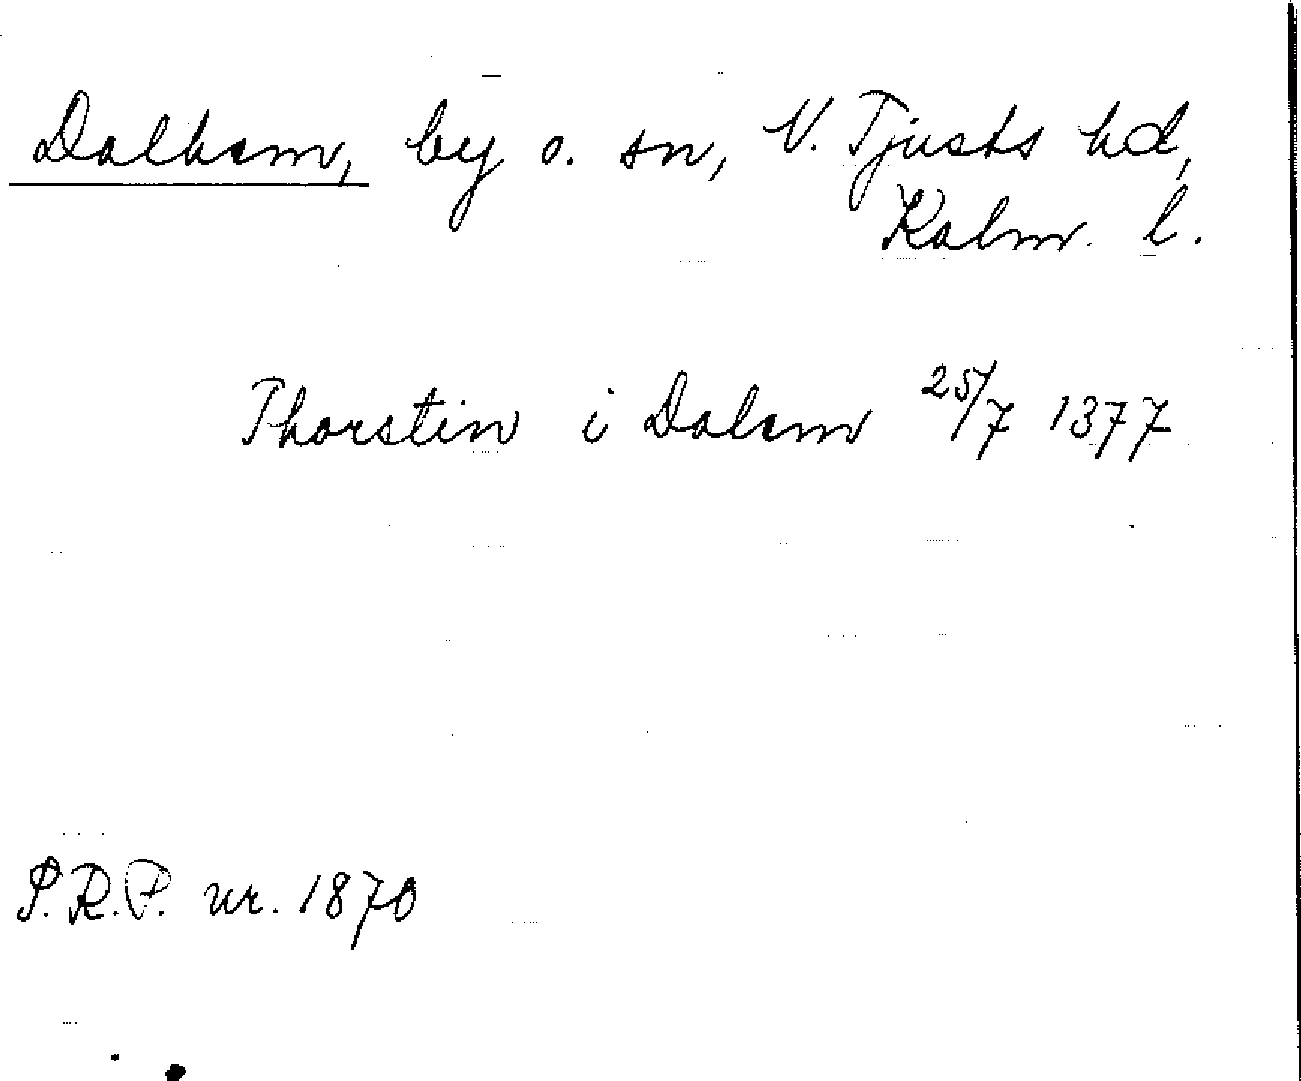 Dalhem, by o. sn, N. Tjusts hd,
Kalm. l.
Thorstin i Dalem 25/7 1377
S.R.P. nr. 1870